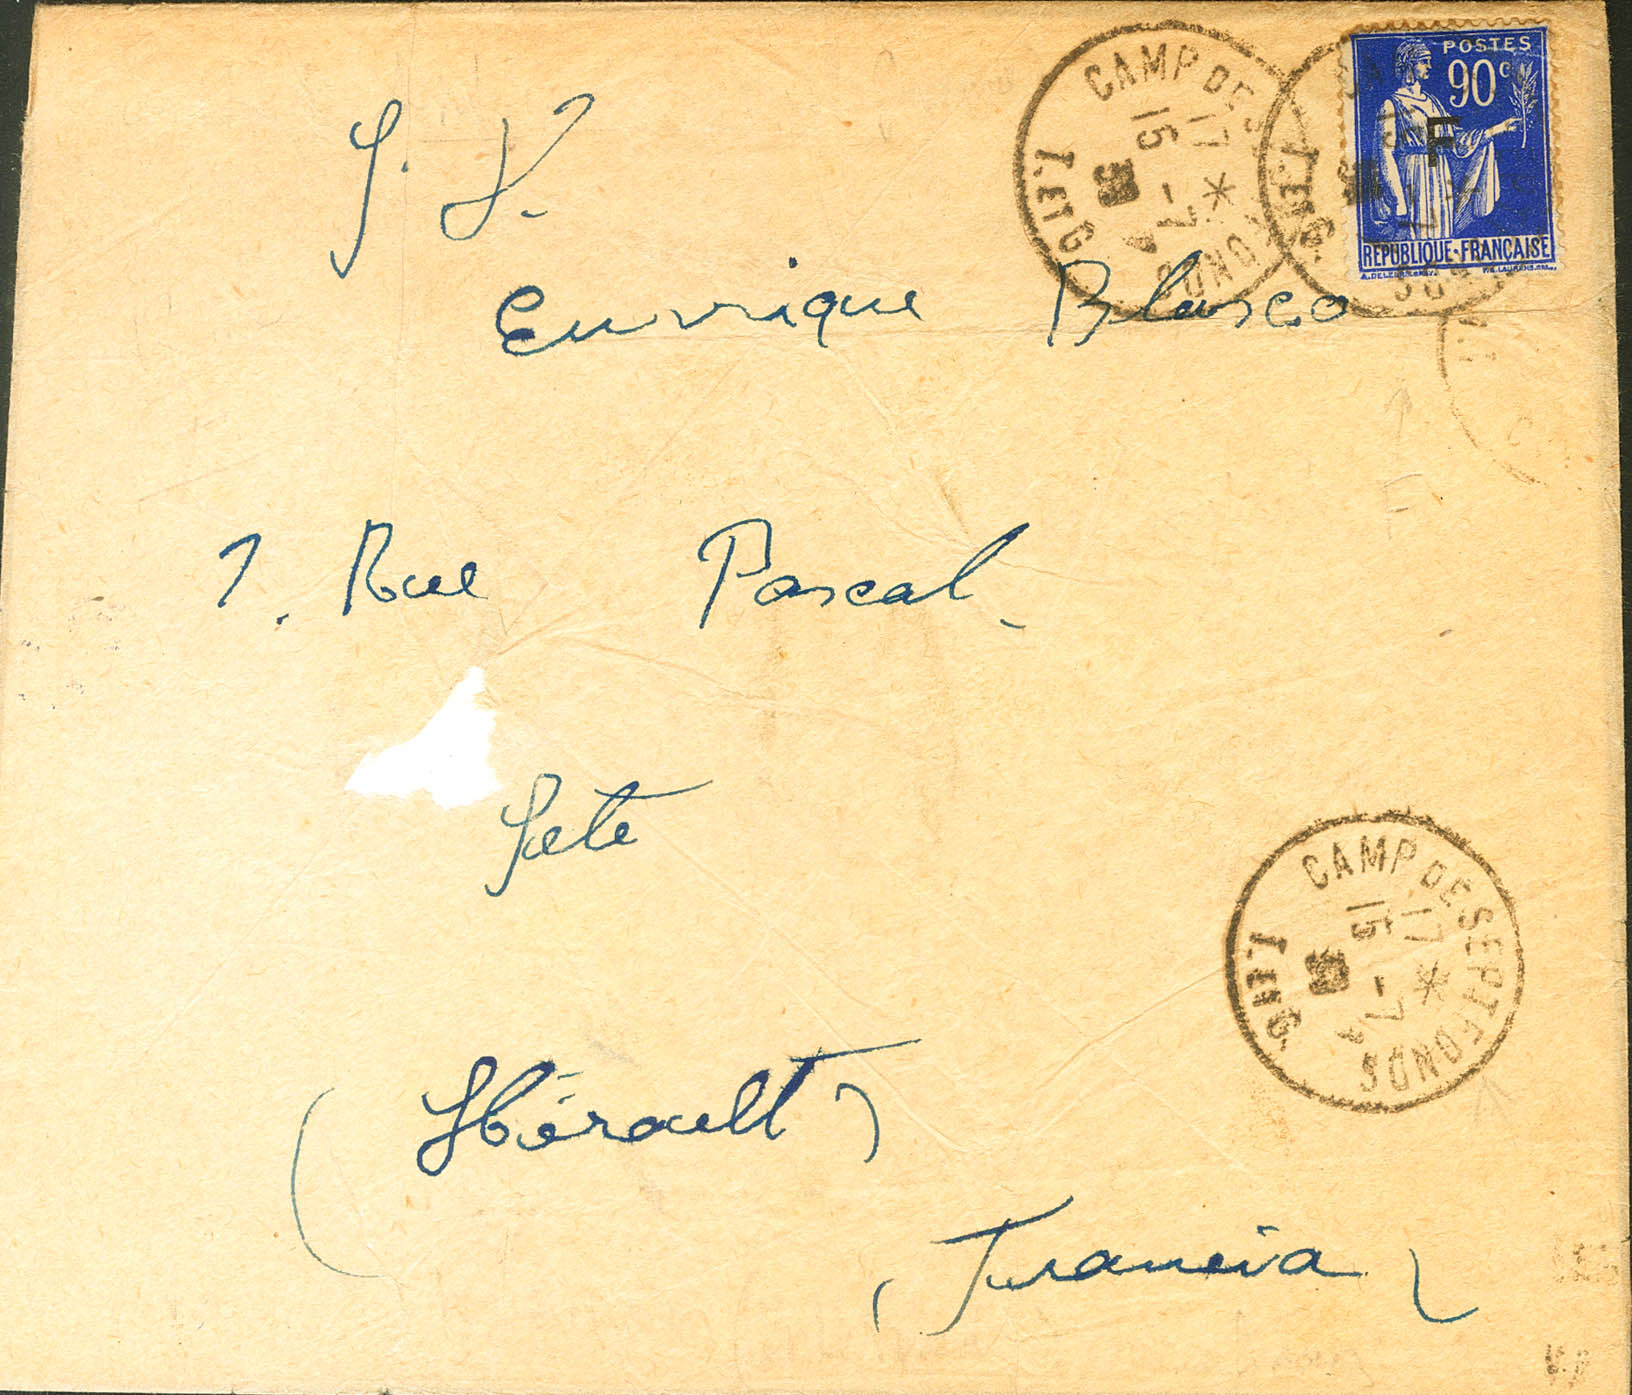 CAMP DE SEPTFONDS
17 *
15 -7
39
T. ET G.
POSTES
90c
F
REPUBLIQUE·FRANÇAISE
S. D.
Enrrique Blasco
F
7. Rue Pascal.
Sete
CAMP DE SEPTFONDS
17 *
15 -7
39
T. ET G.
(Hérault)
(Francia)